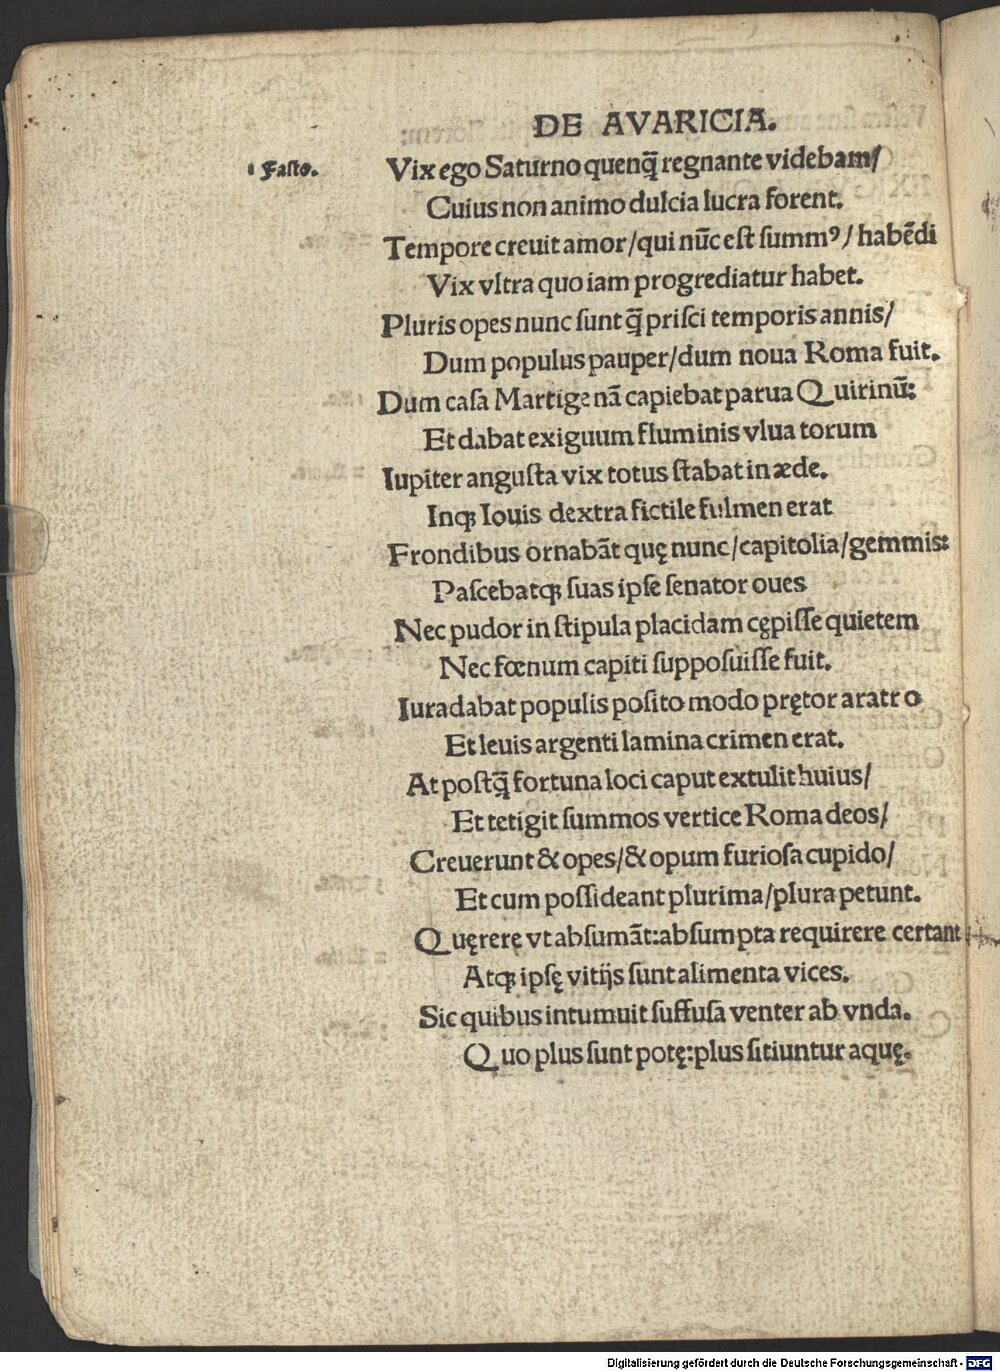 DE AVARICIA.
1 Fasto.
Vix ego Saturno quenq̄ regnante videbam/
Cuius non animo dulcia lucra forent.
Tempore creuit amor/qui nūc eſt ſummꝰ/habēdi
Vix vltra quo iam progrediatur habet.
Pluris opes nunc ſunt q̄ priſci temporis annis/
Dum populus pauper/dum noua Roma fuit.
Dum caſa Martigenā capiebat parua Quirinū:
Et dabat exiguum fluminis vlua torum
Iupiter anguſta vix totus ſtabat in æde.
Inqꝫ Iouis dextra fictile fulmen erat
Frondibus ornabāt quę nunc/capitolia/gemmis:
Paſcebatqꝫ ſuas ipſe ſenator oues
Nec pudor in ſtipula placidam cępiſſe quietem
Nec fœnum capiti ſuppoſuiſſe fuit.
Iura dabat populis poſito modo prętor aratro
Et leuis argenti lamina crimen erat.
At poſtq̄ fortuna loci caput extulit huius/
Et tetigit ſummos vertice Roma deos/
Creuerunt & opes/& opum furioſa cupido/
Et cum poſſideant plurima/plura petunt.
Quęrerę vt abſumāt:abſumpta requirere certant
Atqꝫ ipſę vitijs ſunt alimenta vices.
Sic quibus intumuit ſuffuſa venter ab vnda.
Quo plus ſunt potę:plus ſitiuntur aquę.
Digitalisierung gefördert durch die Deutsche Forschungsgemeinschaft - DFG